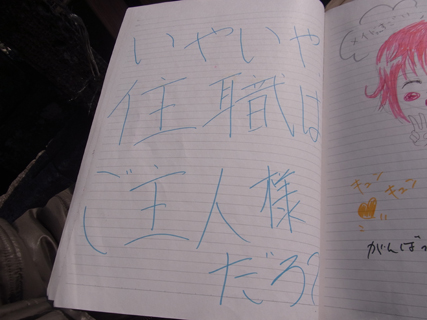 いやいや
住職は
ご主人様
だろ
キュン
キュン
がんばっ